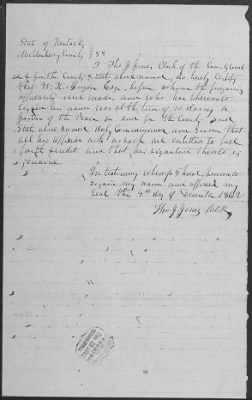 State of Kentucky
Muhlenberg County } SS
I Tho. J. Jones Clerk of the County Court
in & for the County & State above named, do hereby certify
that W. H. Esqr. before whom the foregoing
affidavits were made and who has thereunto
signed his name was at the time of so doing a
Justice of the Peace in and for the County and
State above named duly Commissioned and sworn that
all his official acts as such are entitled to full
faith & credit and that his signature thereto is
genuine
In testimony whereof I have hereunto
signed my name and affixed my
seal this day of December 1862
Tho J Jones Clk